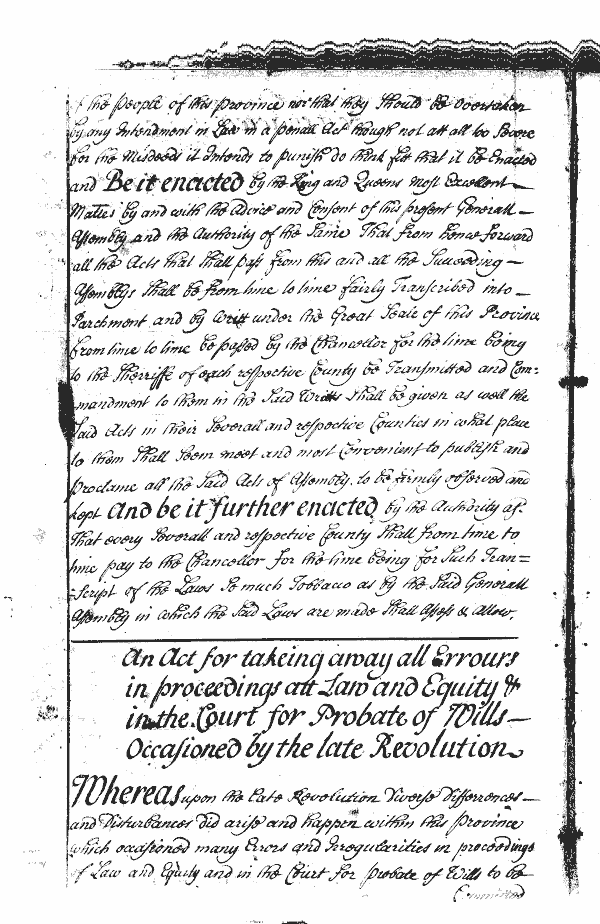 of the people of this Province nor that they Should be Overtaken
by any Intendment in Law in a penall Act though not att all too Severe
for the Misdeeds it Intends to punish do think fitt that it be Enacted
and Be it enacted by the King and Queens most Excellent
Maties by and with the Advice and Consent of this present Generall
Assembly and the Authority of the Same That from hence forward
all the Acts that shall pass from this and all the Succeeding
Assemblys Shall be from time to time fairly Transcribed into
Parchment and by Writt under the Great Seale of this Province
from time to time be passed by the Chancellor for the time being
to the Sherriffe of each respective County be Transmitted and Com=
mandment to them in the Said Writts Shall be given as well the
Said Acts in their Severall and respective Counties in what place
to them Shall Seem meet and most Convenient to publish and
Proclame all the Said Acts of Assembly to be firmly observed and
kept And be it further enacted by the Authority afs.
That every Severall and respective County Shall from time to
time pay to the Chancellor for the time being for Such Tran=
=Script of the Laws So much Tobbacco as by the Said Generall
Assembly in which the Said Laws are made Shall Assess & Allow.
An Act for takeing away all Errours
in proceedings att Law and Equity &
in the Court for Probate of Wills
Occasioned by the late Revolution
Whereas upon the Late Revolution Diverse Differrences
and Disturbances did arise and happen within this Province
which occasioned many Errors and Irregularities in proceedings
of Law and Equity and in the Court for Probate of Wills to be
Committed